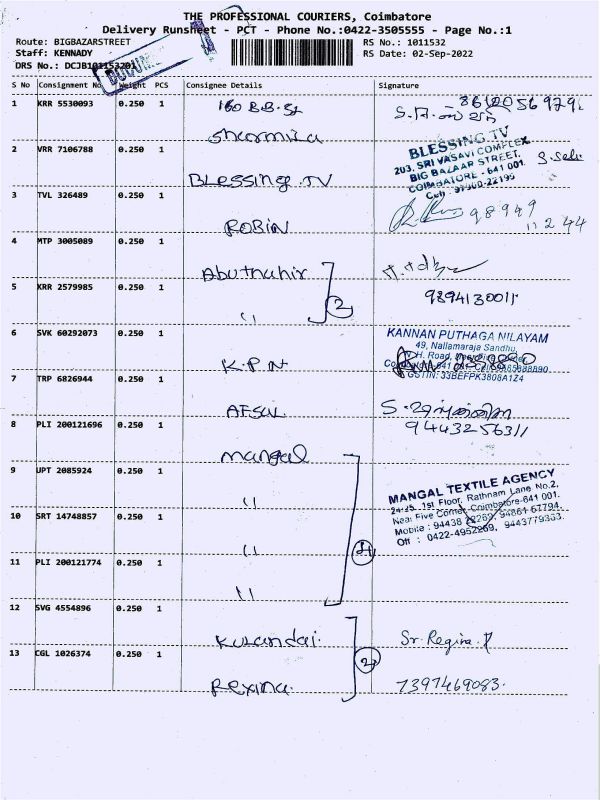 THE PROFESSIONAL COURIERS, Coimbatore
Delivery Runsheet - PCT - Phone No.:0422-3505555 - Page No.:1
Route: BIGBAZARSTREET
RS No.: 1011532
Staff: KENNADY
RS Date: 02-Sep-2022
DRS No.: DCJB101153201
S No Consignment No Weight PCS Consignee Details Signature
1 KRR 5530093 0.250 1 160 B.B.St
Sharmila
2 VRR 7106788 0.250 1 Blessing.TV
BLESSING.TV
203, SRI VASAVI COMPLEX
BIG BAZAAR STREET,
COIMBATORE - 641 001.
3 TVL 326489 0.250 1 ROBIN
98949
11244
4 MTP 3005089 0.250 1 Abuthahir
5 KRR 2579985 0.250 1 " 2
9894130011
6 SVK 60292073 0.250 1 K.P.N
KANNAN PUTHAGA NILAYAM
49, Nallamaraja Sandhu,
GSTIN: 33BEFPK3808A1Z4
7 TRP 6826944 0.250 1 AFSUL
8 PLI 200121696 0.250 1 mangal
9443256311
9 UPT 2085924 0.250 1 "
MANGAL TEXTILE AGENCY
24-25, 1st Floor, Rathnam Lane No.2,
Near Five Corner, Coimbatore-641 001.
Off : 0422-4952269, 9443779333.
10 SRT 14748857 0.250 1 " 4
11 PLI 200121774 0.250 1 "
12 SVG 4554896 0.250 1 Kuzandai. Sr. Regina.
13 CGL 1026374 0.250 1 Rexina. 2 7397469083.